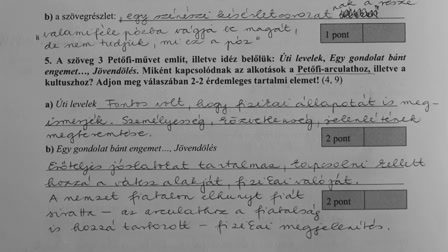 nak a része
b) a szövegrészlet: „egy színészi kísérletsorozat
„valamiféle pózba vágja itt magát,
de nem tudjuk, mi ez a póz”
1 pont
5. A szöveg 3 Petőfi-művet említ, illetve idéz belőlük: Úti levelek, Egy gondolat bánt
engemet…, Jövendölés. Miként kapcsolódnak az alkotások a Petőfi-arculathoz, illetve a
kultuszhoz? Adjon meg válaszában 2-2 érdemleges tartalmi elemet! (4, 9)
a) Úti levelek Fontos volt, hogy fizikai állapotát is meg-
ismerjék. Személyesség, közvetlenség,
megteremtése.
2 pont
b) Egy gondolat bánt engemet…, Jövendölés
Erőteljes jóslatot tartalmaz, kapcsolni kellett
hozzá a vátesz alakját, fizikai valóját.
A nemzet fiatalon elhunyt fiát
siratta – az arculathoz a fiatalság
is hozzá tartozott – fizikai megjelenítés.
2 pont